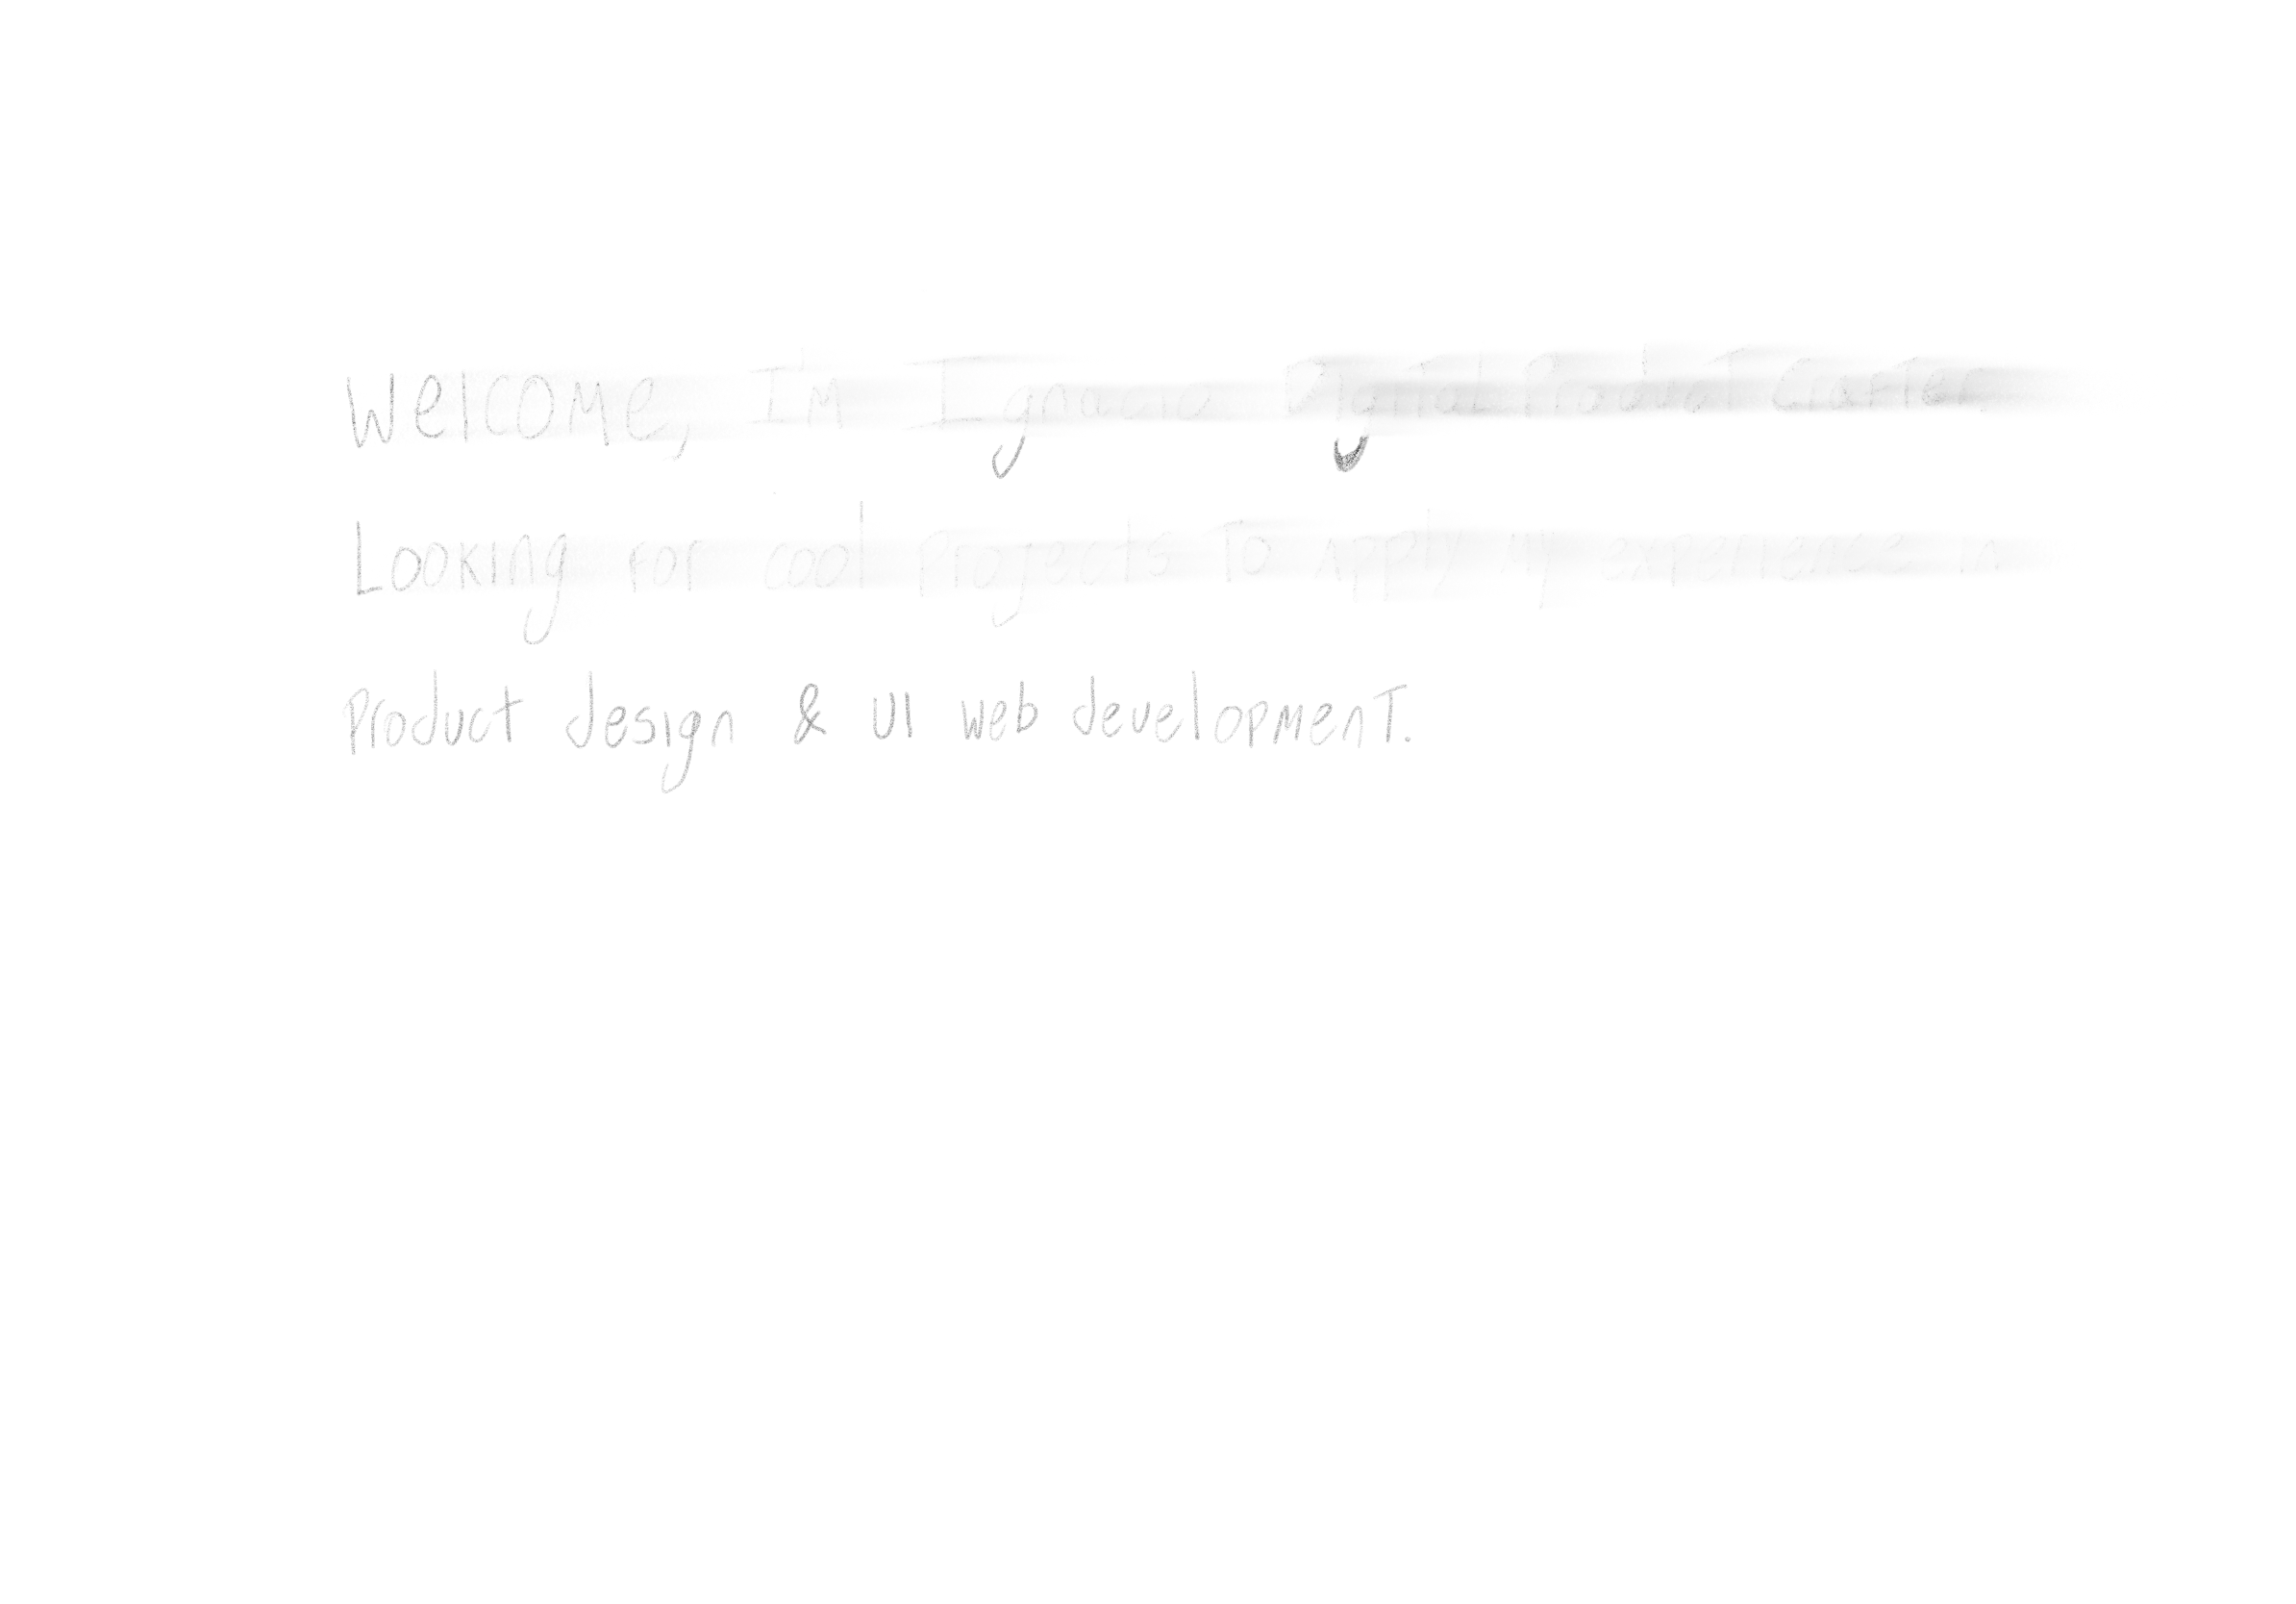 Welcome, I'm Ignacio Digital Product Crafter
Looking for cool Projects To apply my experience in
Product design & UI web development.